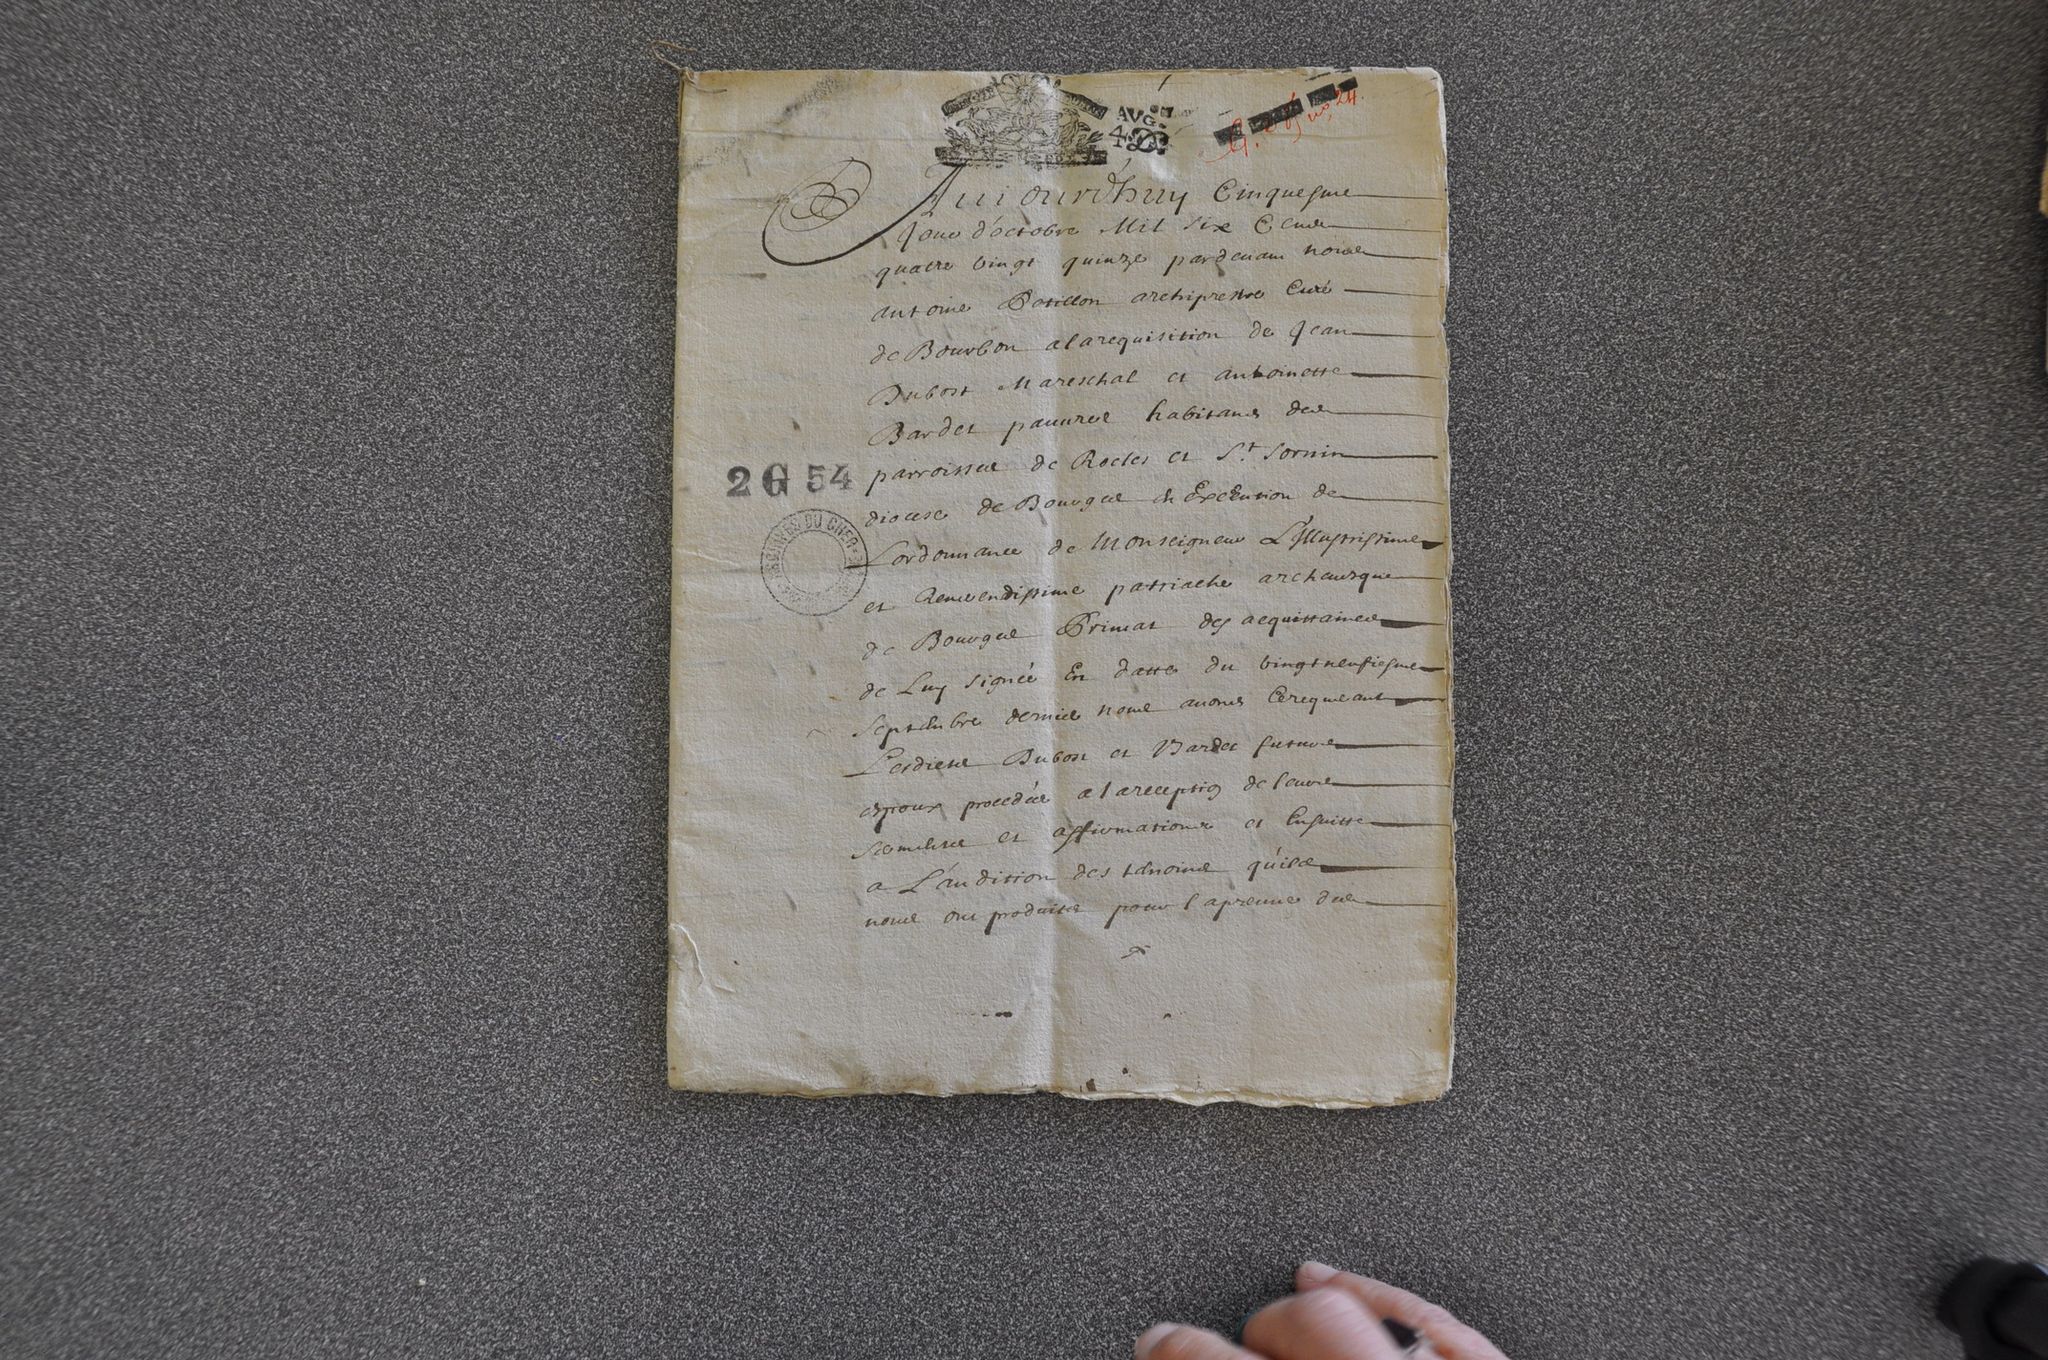 AVG.
4 D
Aujourdhuy Cinquesme
Jour d'octobre Mil six Cens
quatre vingt quinze pardevant nous
antoine archiprestre Curé
de Bourbon alarequisition de Jean
Dubost Mareschal et antoinette
Bardet pauvres habitans des
parroisses de Rocles et St. Sornin
2 G 54
diocese de Bourges en Execution de
L'ordonnance de Monseigneur L'Illustrissime
ARCHIVES DU CHER
et Reverendissime patriache archevesque
de Bourges Primat des acquittaines
de Luy signée En datte du vingtneufiesme
septembre dernier nous avons Cerequerant
Lesdicts Dubost et Bardet futurs
espoux procedée alareception de leurs
sermens et affirmations et Ensuitte
a L'audition des tesmoins quils
nous ont produits pour lapreuve des